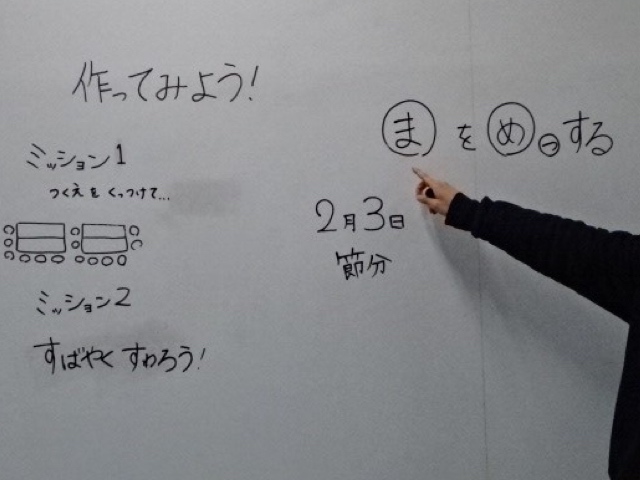 作ってみよう!
ミッション1
つくえをくっつけて...
ミッション2
すばやくすわろう!
まをめっする
2月3日
節分